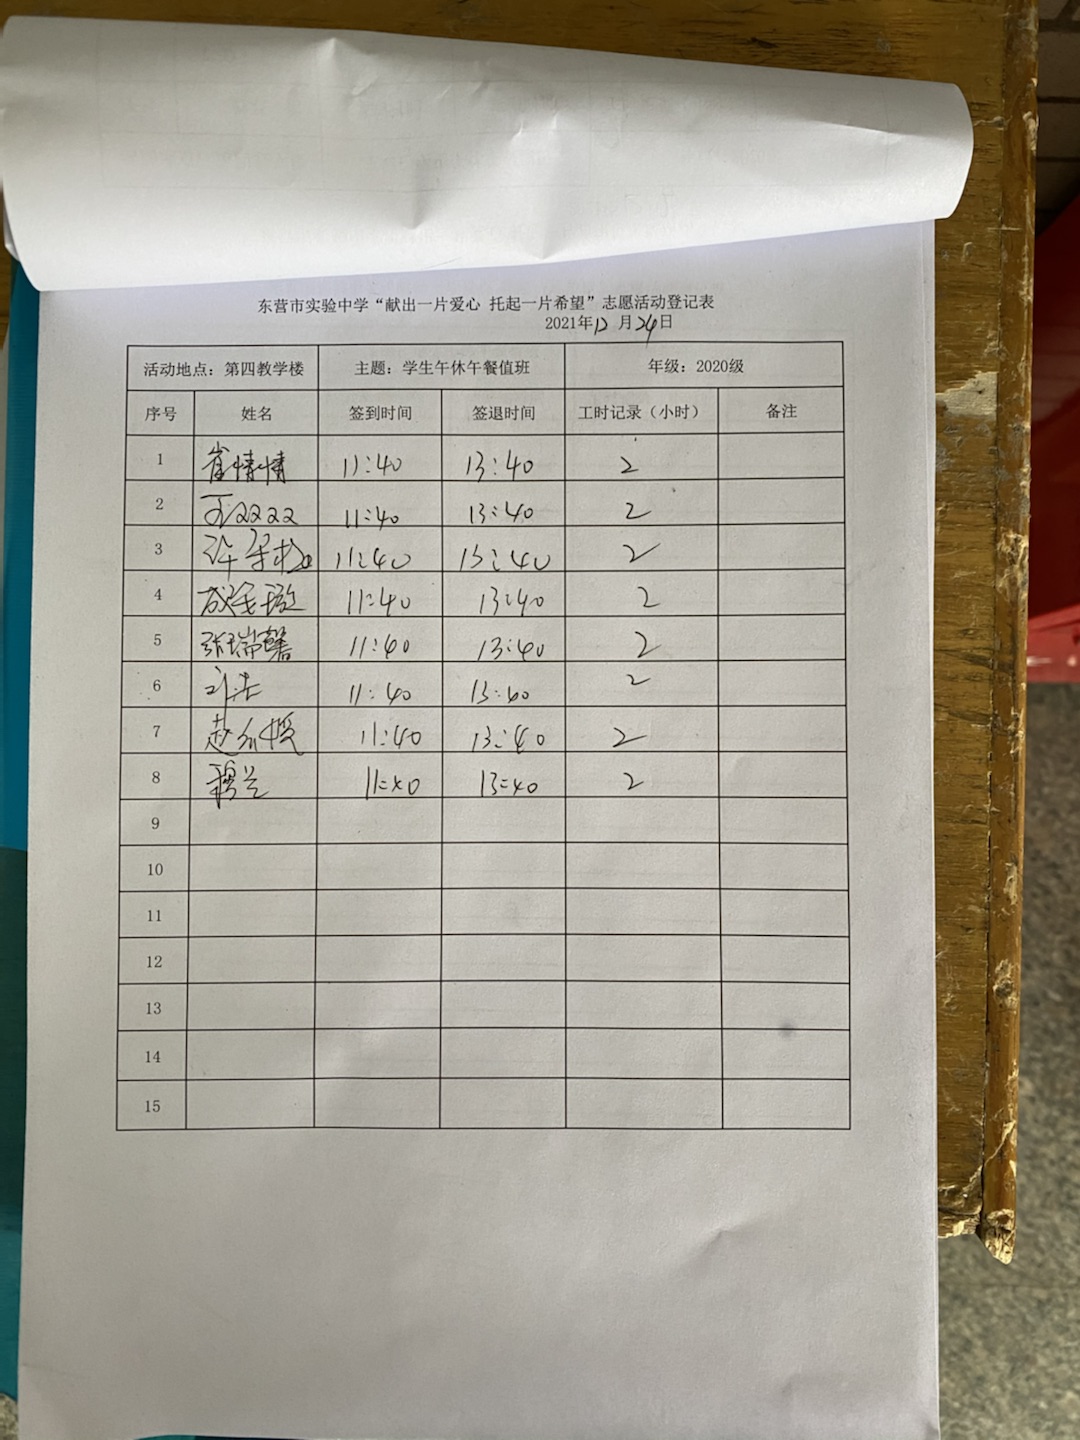 东营市实验中学“献出一片爱心 托起一片希望”志愿活动登记表
2021年12月24日
活动地点：第四教学楼 主题：学生午休午餐值班 年级：2020级
序号 姓名 签到时间 签退时间 工时记录（小时） 备注
1 崔情情 11:40 13:40 2
2 11:40 13:40 2
3 许 11:40 13:40 2
4 11:40 13:40 2
5 张瑞馨 11:40 13:40 2
6 11:40 13:40 2
7 赵 11:40 13:40 2
8 穆兰 11:40 13:40 2
9
10
11
12
13
14
15